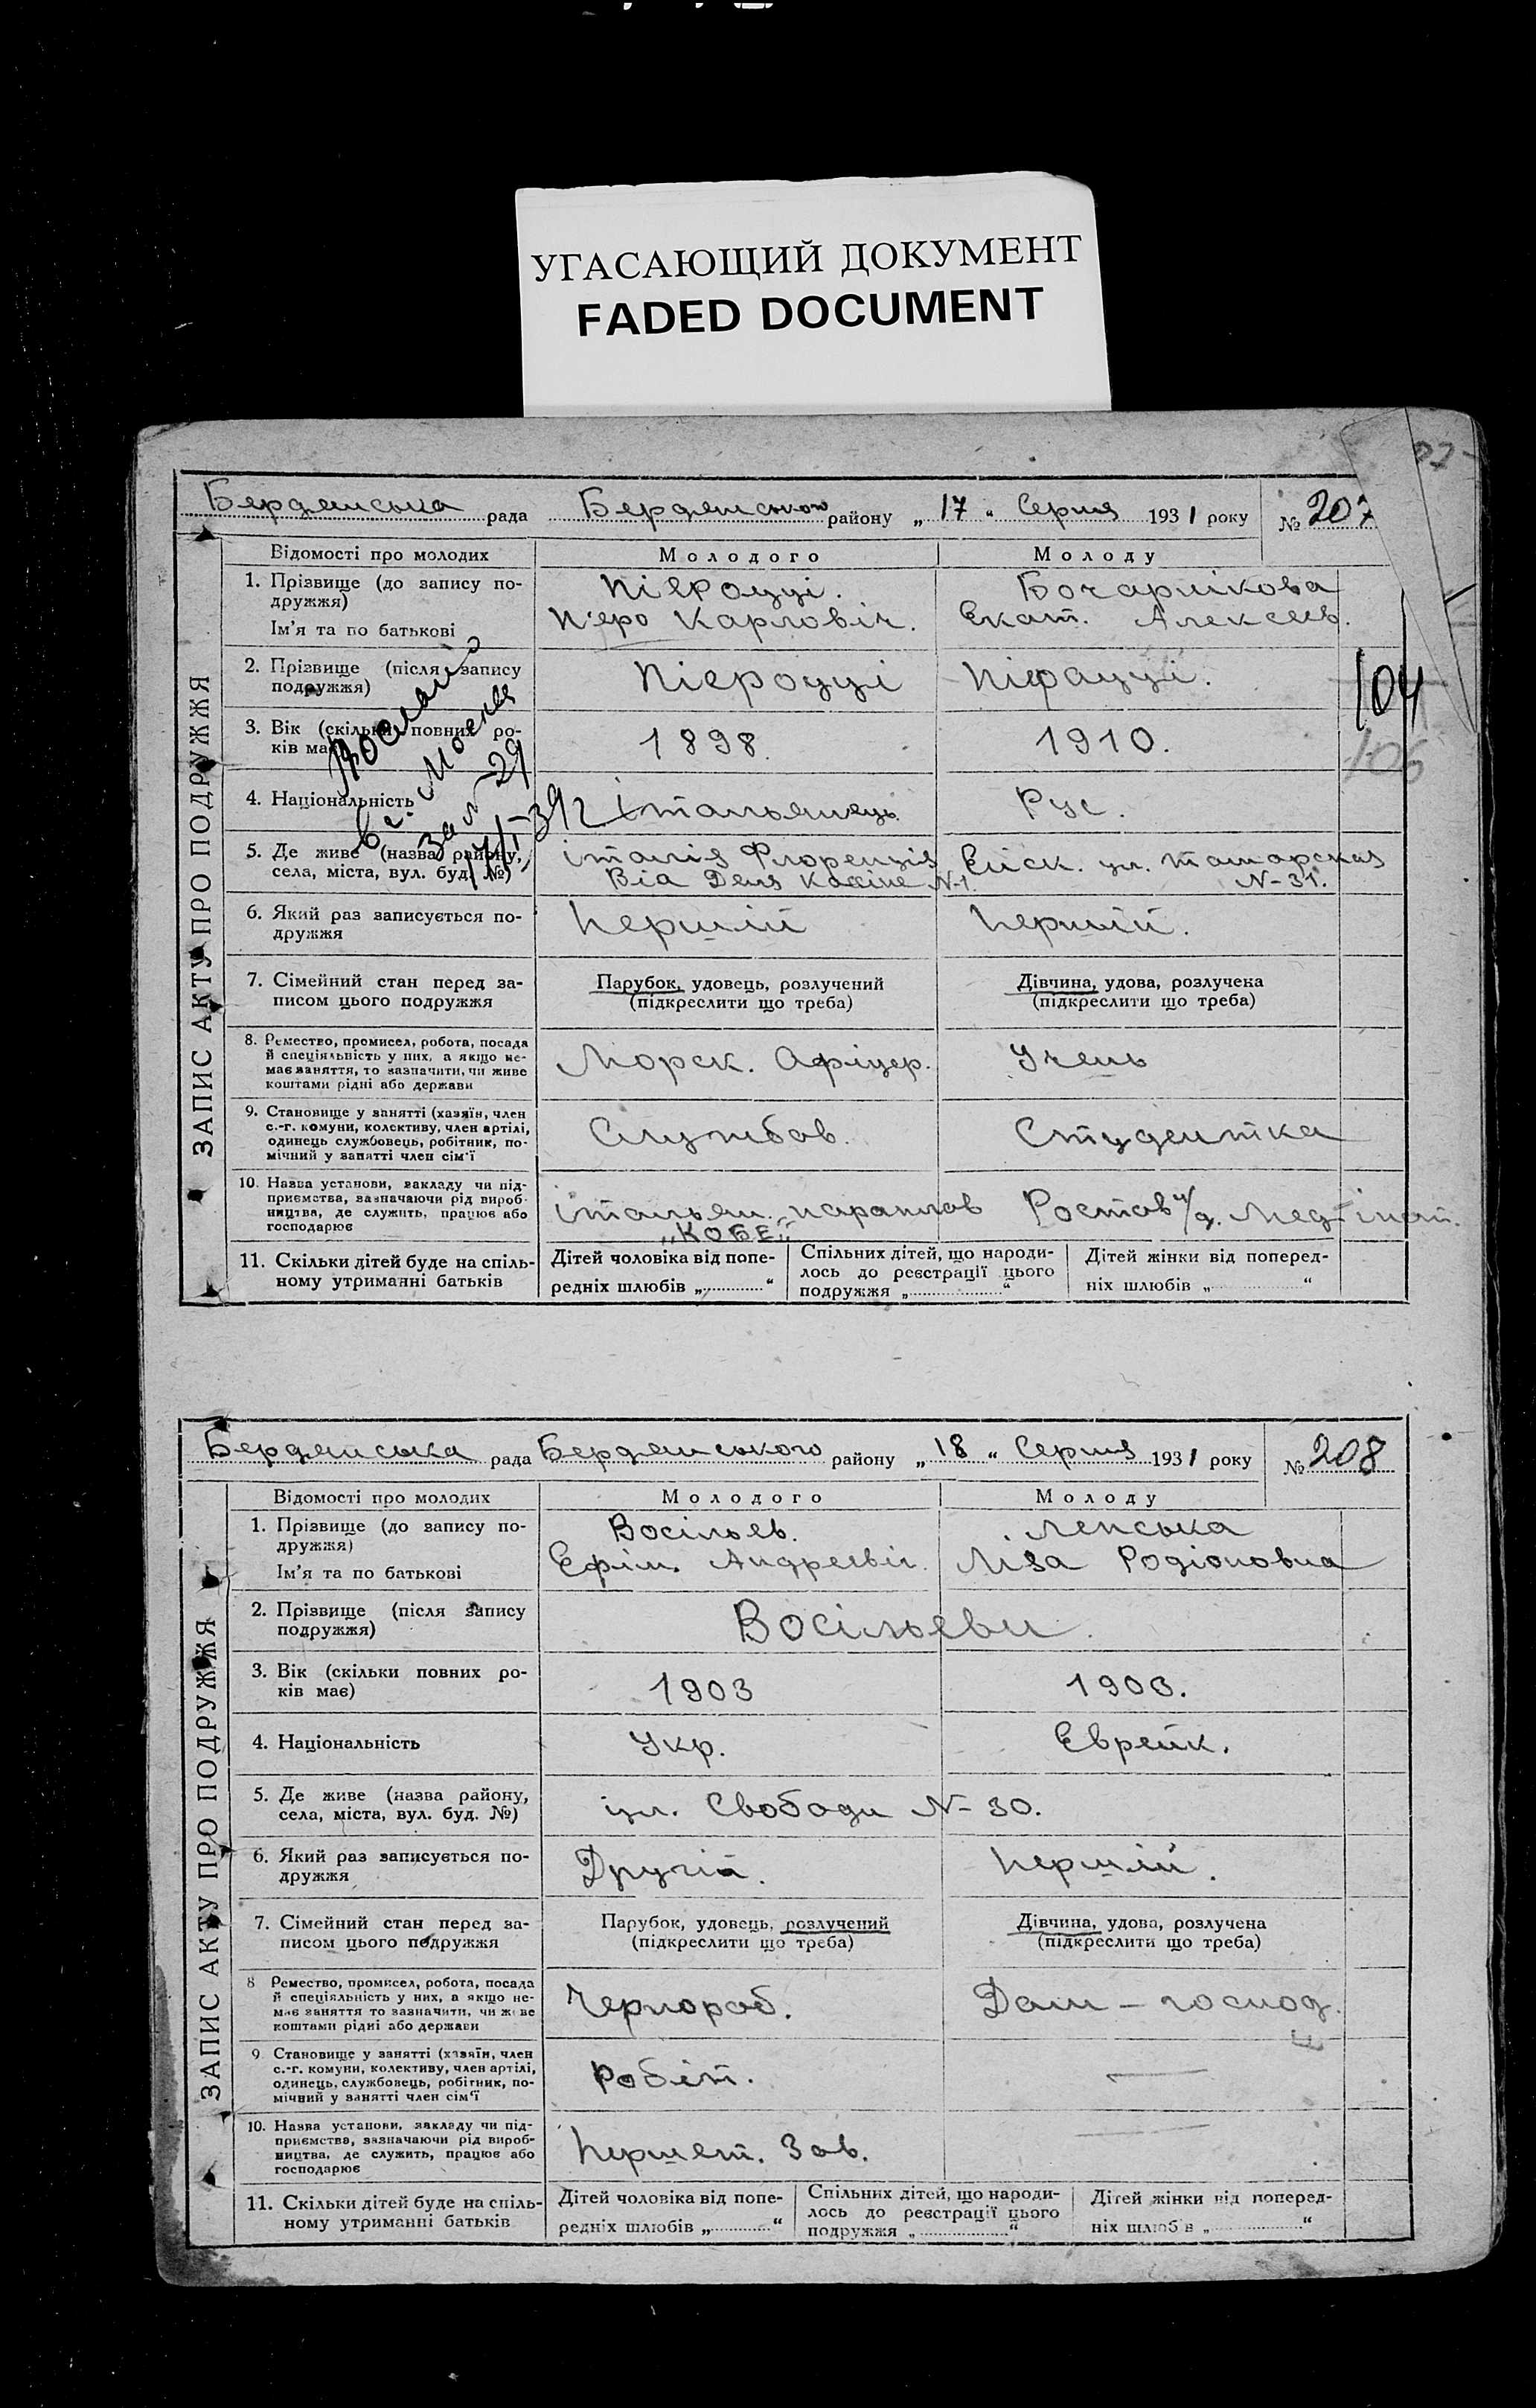 УГАСАЮЩИЙ ДОКУМЕНТ
FADED DOCUMENT
Бердянська рада Бердянського району „17“ Серпня 1931 року № 207
ЗАПИС АКТУ ПРО ПОДРУЖЖЯ
Відомості про молодих Молодого Молоду
1. Прізвище (до запису по-
дружжя)
Ім'я та по батькові
Піероцці. Бочарнікова
П'еро Карловіч. Екат. Алексеев.
2. Прізвище (після запису
подружжя)
Піероцці Піроцці.
3. Вік (скільки повних ро-
ків має)
1898. 1910.
4. Національність
Італьянець Рус.
5. Де живе (назва району,
села, міста, вул. буд. №)
італія Флоренція Ейск. ул. Татарская
Віа Дель Кассіне N-1. N-31.
в г. Москва
за N-29
104
106
6. Який раз записується по-
дружжя
Першій Першій.
7. Сімейний стан перед за-
писом цього подружжя
Парубок, удовець, розлучений Дівчина, удова, розлучена
(підкреслити що треба) (підкреслити що треба)
8. Ремество, промисел, робота, посада
й спеціяльність у них, а якщо не-
має заняття, то зазначити, чи живе
коштами рідні або держави
Морск. Офіцер. Учень
9. Становище у занятті (хазяїн, член
с.-г. комуни, колективу, член артілі,
одинець службовець, робітник, по-
мічний у занятті член сім'ї
Службов. Студентка
10. Назва установи, закладу чи під-
приємства, зазначаючи рід вироб-
ництва, де служить, працює або
господарює
італьян. параплав Ростов н/д. Мед-інст.
„КОБЕ“
11. Скільки дітей буде на спіль-
ному утриманні батьків
Дітей чоловіка від попе-
редніх шлюбів „ “
Спільних дітей, що народи-
лось до реєстрації цього
подружжя „ “
Дітей жінки від поперед-
ніх шлюбів „ “
Бердянська рада Бердянського району „18“ Серпня 1931 року № 208
ЗАПИС АКТУ ПРО ПОДРУЖЖЯ
Відомості про молодих Молодого Молоду
1. Прізвище (до запису по-
дружжя)
Ім'я та по батькові
Восільев. Ленська
Ефім. Андреевіч. Ліза Родіоновна
2. Прізвище (після запису
подружжя)
Восільеви.
3. Вік (скільки повних ро-
ків має)
1903 1903.
4. Національність
Укр. Еврейк.
5. Де живе (назва району,
села, міста, вул. буд. №)
ул. Свободи N-30.
6. Який раз записується по-
дружжя
Другій. Першій.
7. Сімейний стан перед за-
писом цього подружжя
Парубок, удовець, розлучений Дівчина, удова, розлучена
(підкреслити що треба) (підкреслити що треба)
8 Ремество, промисел, робота, посада
й спеціяльність у них, а якщо не-
має заняття то зазначити, чи живе
коштами рідні або держави
Чернороб. Дом-господ.
9 Становище у занятті (хазяїн, член
с.-г. комуни, колективу, член артілі,
одинець, службовець, робітник, по-
мічний у занятті член сім'ї
Робіт. —
10. Назва установи, закладу чи під-
приємства, зазначаючи рід вироб-
ництва, де служить, працює або
господарює
Першет. Зав.
11. Скільки дітей буде на спіль-
ному утриманні батьків
Дітей чоловіка від попе-
редніх шлюбів „ “
Спільних дітей, що народи-
лось до реєстрації цього
подружжя „ “
Дітей жінки від поперед-
ніх шлюбів „ “